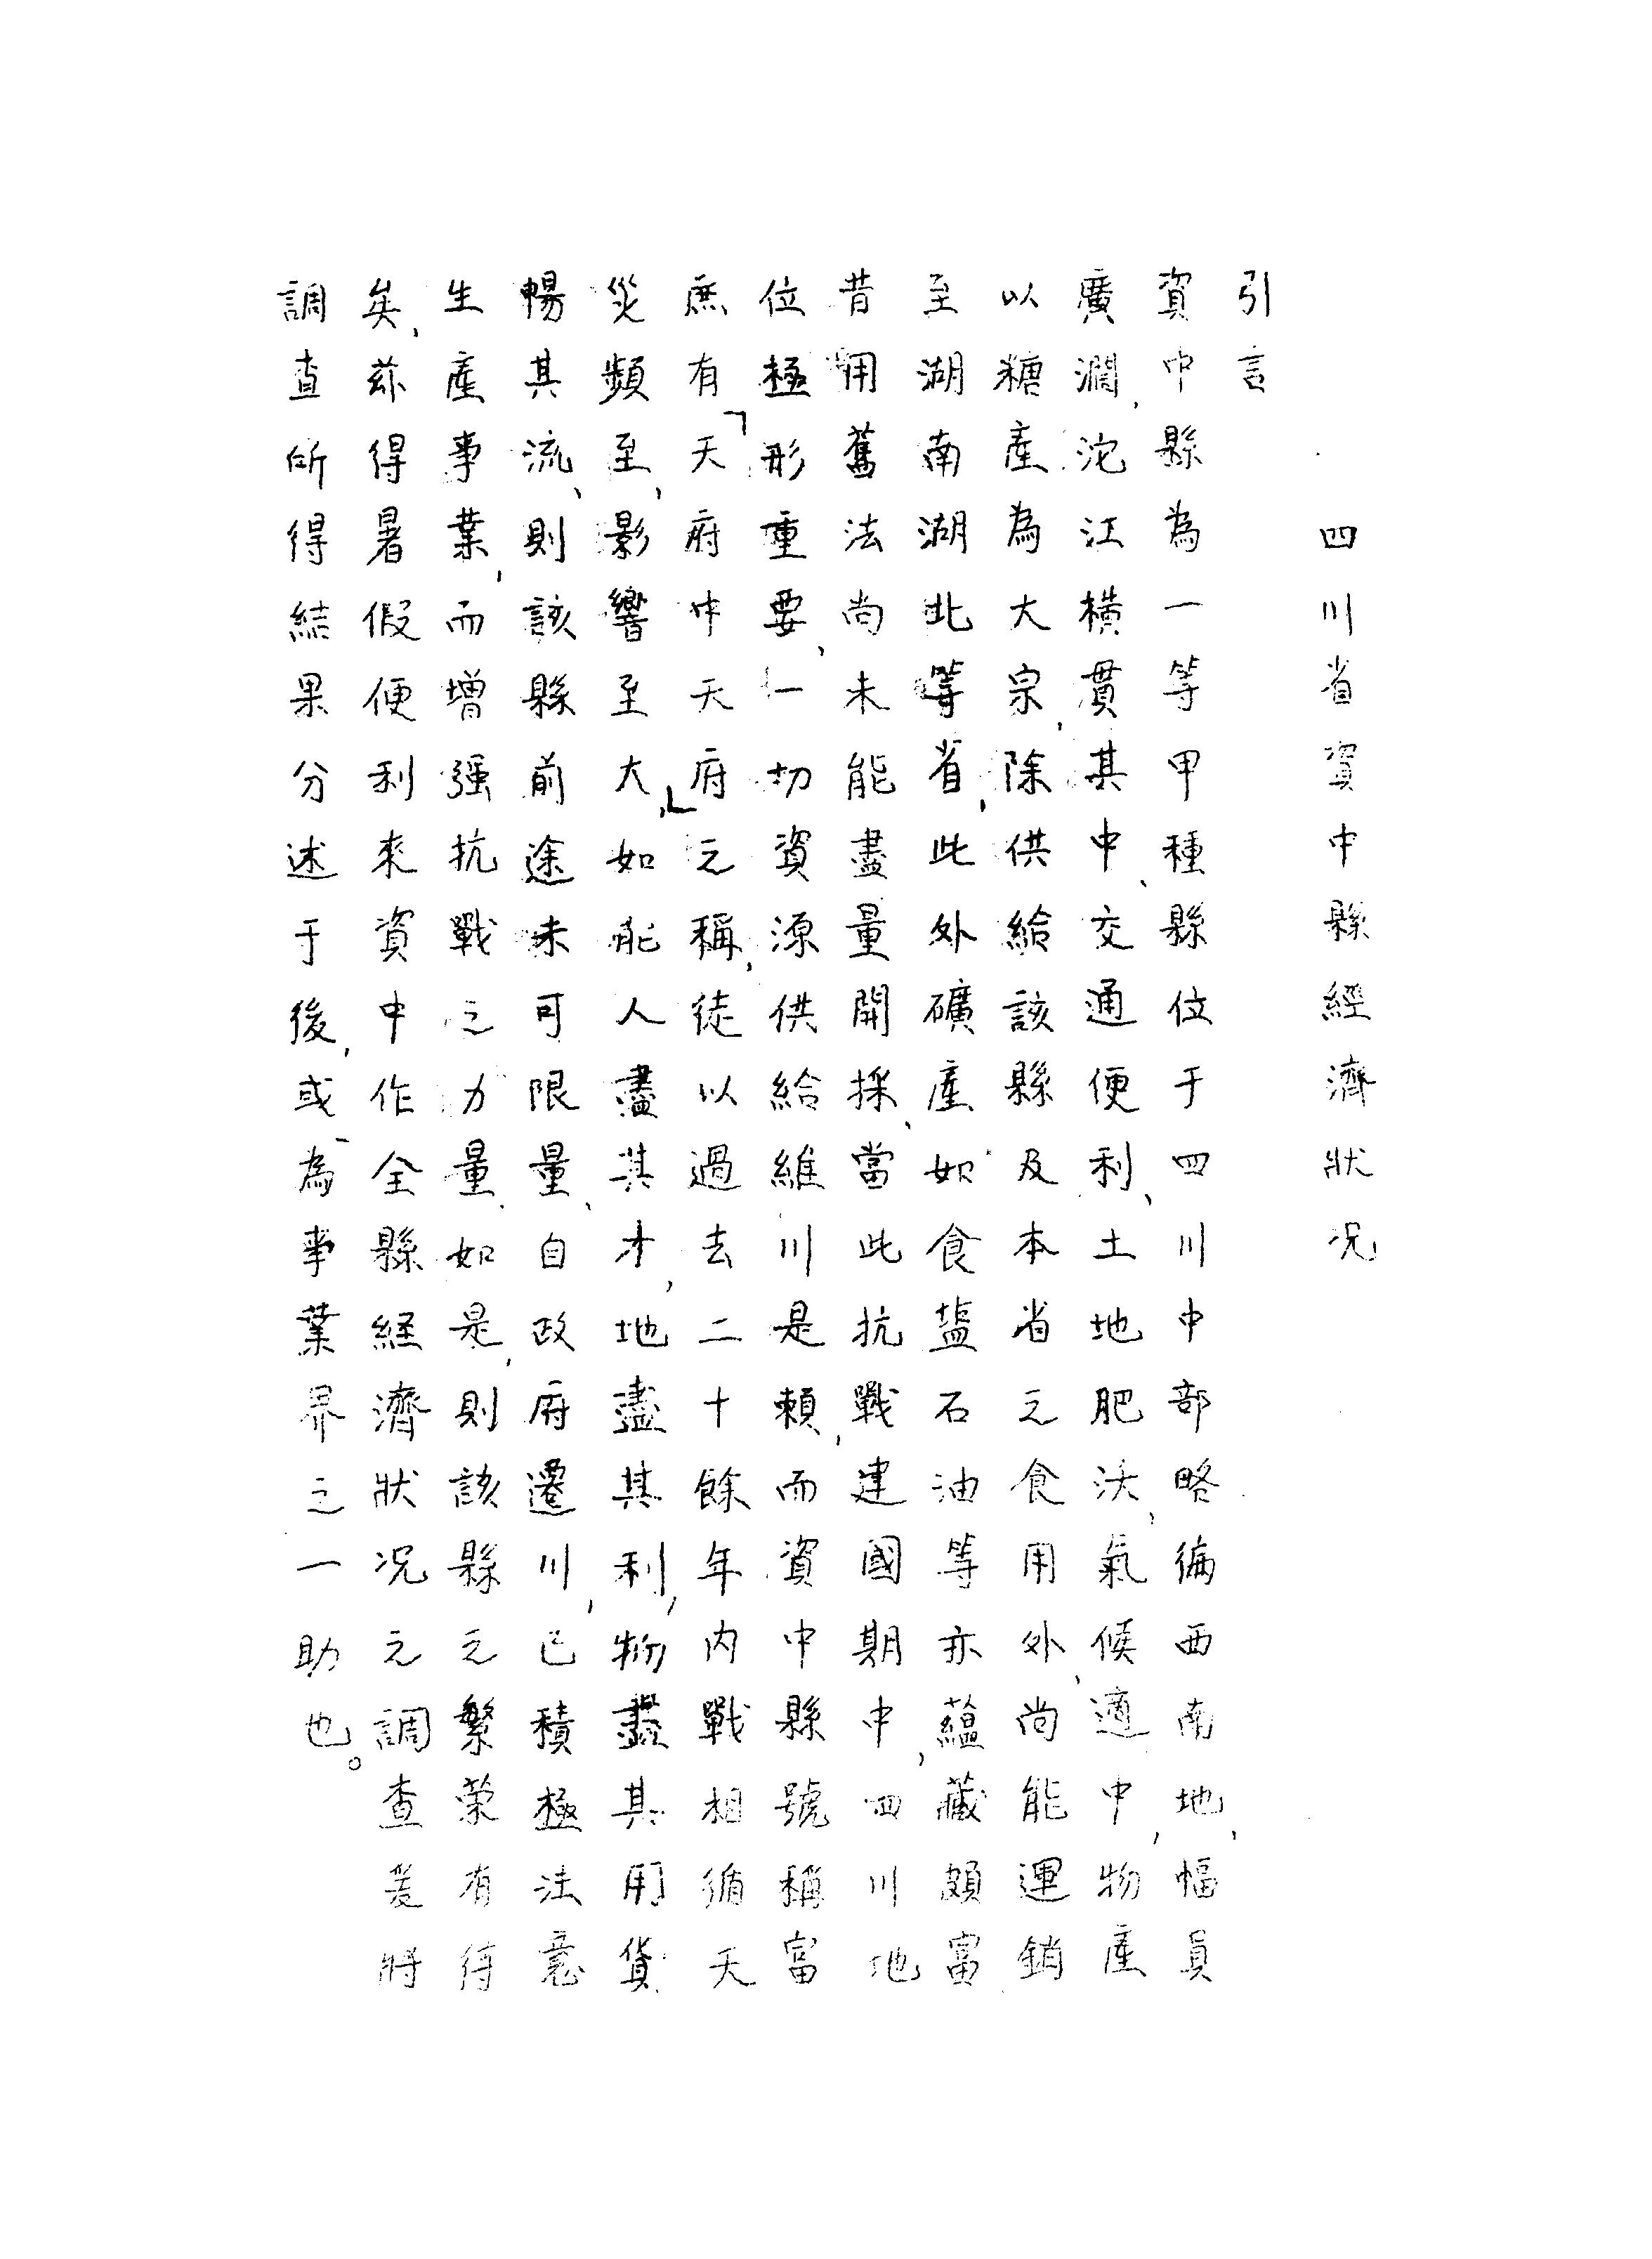 四川省資中縣經濟狀况
引言
資中縣為一等甲種縣位于四川中部略偏西南地，幅員
廣濶，沱江橫貫其中、交通便利、土地肥沃、氣候適中，物產
以糖產為大宗，除供給該縣及本省之食用外、尚能運銷
至湖南湖北等省，此外礦產如食盐石油等亦蘊藏頗富
昔用舊法尚未能盡量開採、當此抗戰建國期中，四川地
位極形重要，一切資源供給維川是賴，而資中縣號稱富
庶有「天府中天府」之稱，徒以過去二十餘年內戰相循天
災頻至，影響至大，如能人盡其才，地盡其利，物盡其用貨
暢其流、則該縣前途未可限量、自政府遷川，已積極注意
生產事業，而增强抗戰之力量，如是，則該縣之繁荣有待
矣，茲得暑假便利來資中作全縣経濟狀况之調查爰將
調查所得結果分述于後，或為事業界之一助也。